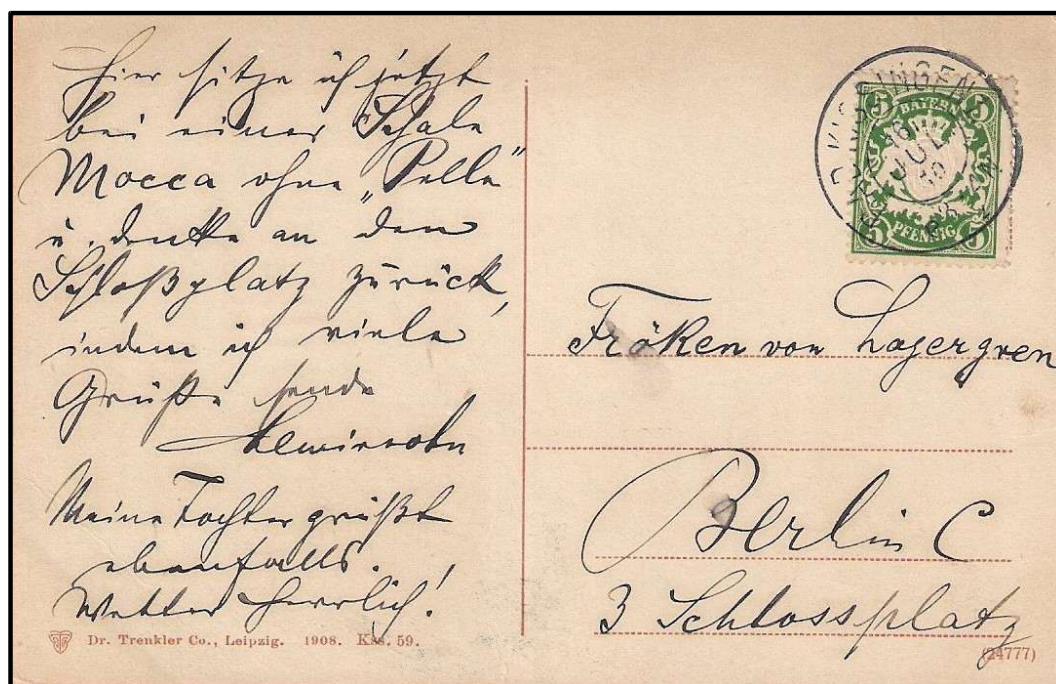 Hier sitze ich jetzt
bei einer Schale
Mocca ohne „Pelle“
u. denke an den
Schloßplatz zurück,
indem ich viele
Grüße sende
Meine Tochter grüßt
ebenfalls.
Wetter herrlich!
Dr. Trenkler Co., Leipzig. 1908. Kss. 59.
KISSINGEN
JUL
BAYERN
5 5
PFENNIG
Fröken von Lagergren
Berlin C
3 Schlossplatz
(24777)